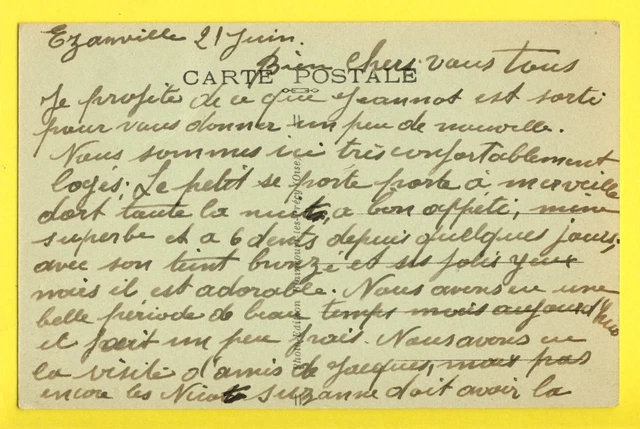 Ezanville 21 Juin.
Bien chers vous tous
CARTE POSTALE
Je profite de ce que Jeannot est sorti
pour vous donner un peu de nouvelle.
Nous sommes ici très confortablement
logés; Le petit se porte porte à merveille
dort toute la nuit, a bon appéti, mine
superbe et a 6 dents depuis quelques jours;
avec son teint bronzé et ses jolis yeux
mais il est adorable. Nous avons eu une
belle période de beau temps mais aujourd'hui
il fait un peu frais. Nous avons eu
la visite d'amis de Jacques, mais pas
encore les Nicot Suzanne doit avoir la